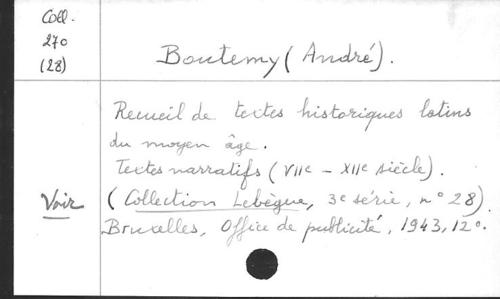 Coll.
270
(28)
Boutemy (André).
Recueil de textes historiques latins
du moyen âge.
Textes narratifs (VIIe - XIIe siècle).
Voir
(Collection Lebègue, 3e série, n° 28)
Bruxelles, Office de publicité, 1943, 12°.